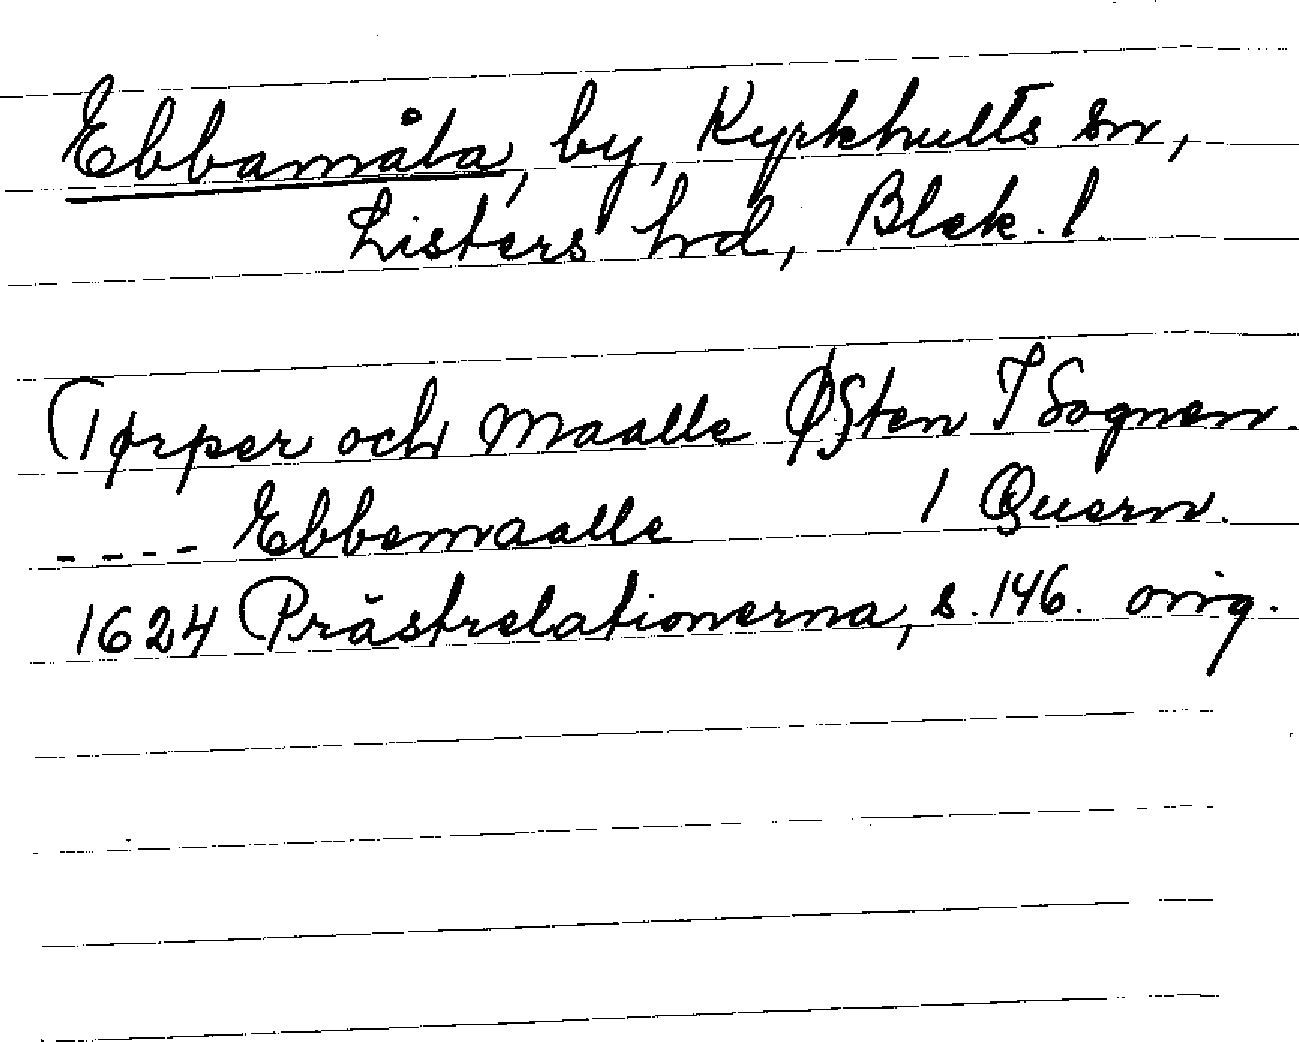 Ebbamåla, by, Kyrkhults sn,
Listers hrd, Blek. l.
Tørper och Maalle Østen I Sognen.
---- Ebbemaalle 1 Quern.
1624 Prästrelationerna, s. 146. orig.